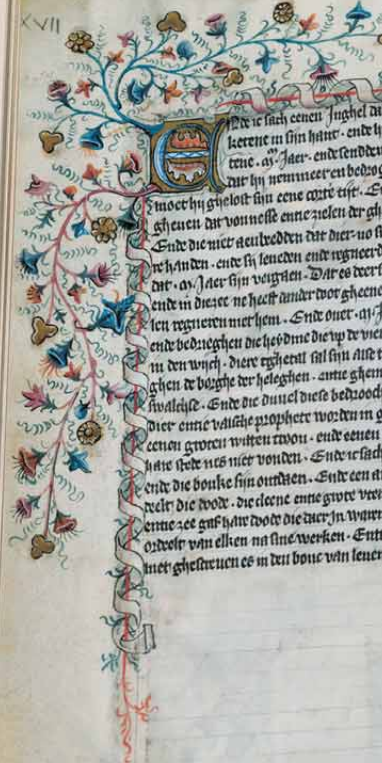 XVII
Ende ic sach eenen Inghel da
ketene in sijn hant · ende b
tene · M · Jaer · ende senddeu
dat hij nemmeer en bedrog
moet hij ghelost sijn eene corte tijt · E
ghenen dat vonnesse entie zielen der gh
Ende die niet aenbedden dat dier · no s
re handen · ende sij leueden ende regneerd
dat · M · Jaer sijn vergaen · Dat es deerst
ende in dieze ne heeft dander doot gheene
len regneren met hem · Ende ouer · M · J
ende bedrieghen die liedine die up de vie
in den wijch · diere tghetal sal sijn alse t
ghen de borghe der heleghen · entie ghem
swalchse · Ende die duuel diese bedrooch
dier entie valsche prophete worden in g
eenen groten witten troon · ende eenen
hare stede nes niet vonden · Ende ic sach
ende die bouke sijn ontdaen · Ende een a
deelt die doode · die cleene entie grote vte
entie zee gaf hare doode die daer in ware
ordeelt van elken na sine werken · Enti
niet ghescreuen es in den bouc van leuen